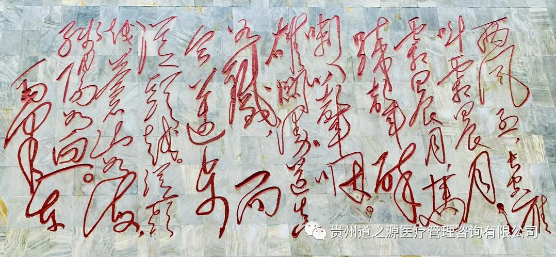 西风烈,长空雁
叫霜晨月。
霜晨月,马
蹄声碎,
喇叭声咽。
雄关漫道真
如铁,而
今迈步
从头越。从头
越,苍山如海,
残阳如血。
毛泽东
贵州道之源医疗管理咨询有限公司